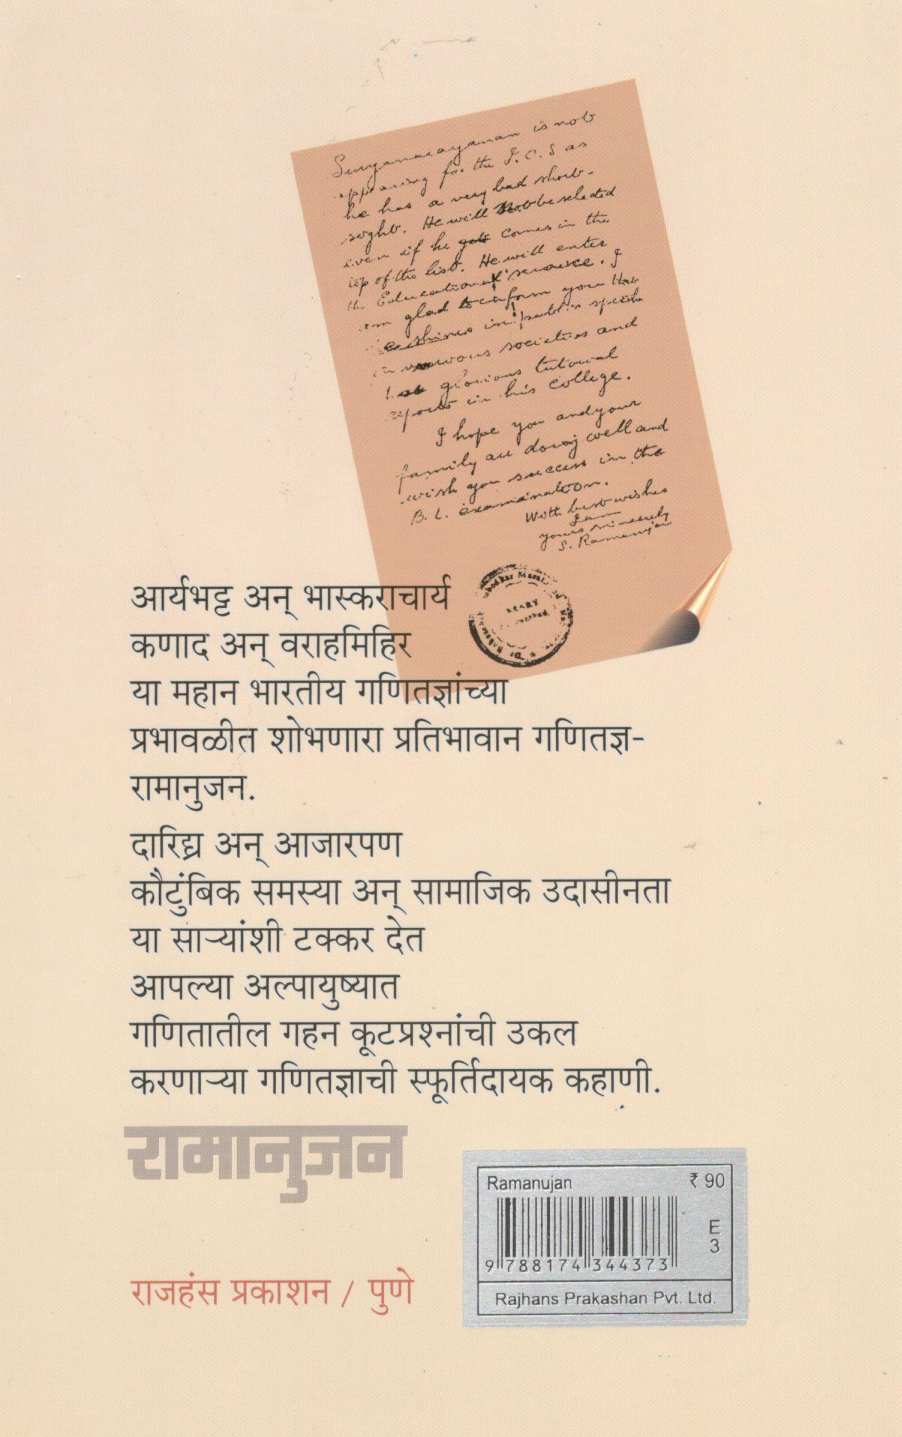 Suryanarayanan is not
appearing for the I.C.S as
he has a very bad short-
sight. He will not be selected
even if he gets comes in the
top of the list. He will enter
the Educational service. I
am glad to inform you that
he shines in public speech
in various societies and
glorious tutorial
reports in his college.
I hope you and your
family are doing well and
wish you success in the
B. L. examination.
With best wishes
I am
yours sincerely
S. Ramanujan
आर्यभट्ट अन् भास्कराचार्य
कणाद अन् वराहमिहिर
या महान भारतीय गणितज्ञांच्या
प्रभावळीत शोभणारा प्रतिभावान गणितज्ञ-
रामानुजन.
दारिद्य्र अन् आजारपण
कौटुंबिक समस्या अन् सामाजिक उदासीनता
या साऱ्यांशी टक्कर देत
आपल्या अल्पायुष्यात
गणितातील गहन कूटप्रश्नांची उकल
करणाऱ्या गणितज्ञाची स्फूर्तिदायक कहाणी.
रामानुजन
Ramanujan ₹ 90
E
3
9 788174 344373
Rajhans Prakashan Pvt. Ltd.
राजहंस प्रकाशन / पुणे